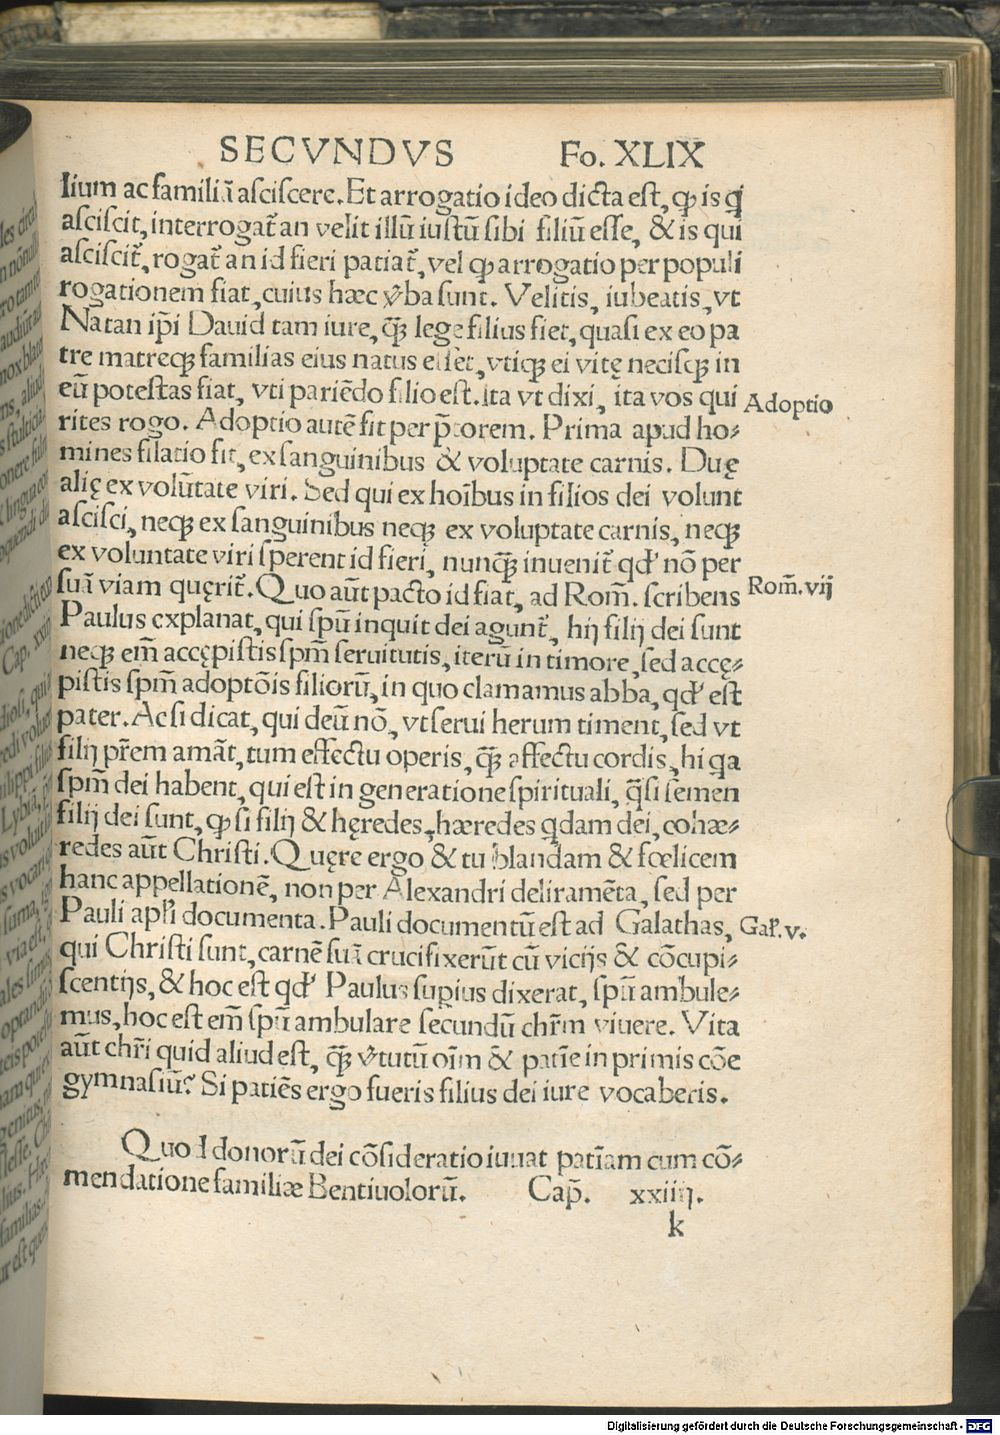 SECVNDVS Fo. XLIX
lium ac familiā asciscere. Et arrogatio ideo dicta est, ꝙ is q̇
asciscit, interrogat᷑ an velit illū iustū sibi filiū esse, & is qui
asciscit᷑, rogat᷑ an id fieri patiat᷑, vel ꝙ arrogatio per populi
rogationem fiat, cuius hæc v̓ba sunt. Velitis, iubeatis, vt
Natan ip̄i Dauid tam iure, q̄ꝫ lege filius fiet, quasi ex eo pa
tre matreqꝫ familias eius natus esset, vtiqꝫ ei vitę necisqꝫ in
eū potestas fiat, vti pariēdo filio est. Ita vt dixi, ita vos qui
rites rogo. Adoptio autē fit per p̄torem. Prima apud ho⸗
Adoptio
mines filatio fit, ex sanguinibus & voluptate carnis. Duę
alię ex volūtate viri. Sed qui ex hoībus in filios dei volunt
ascisci, neqꝫ ex sanguinibus neqꝫ ex voluptate carnis, neqꝫ
ex voluntate viri sperent id fieri, nunq̄ꝫ inuenit᷑ qd' nō per
suā viam quęrit᷑. Quo aūt pacto id fiat, ad Rom̄. scribens
Rom̄. vij
Paulus explanat, qui spū inquit dei agunt᷑, hij filij dei sunt
neqꝫ em̄ accępistis spm̄ seruitutis, iterū in timore, sed accę⸗
pistis spm̄ adoptōis filiorū, in quo clamamus abba, qd' est
pater. Ac si dicat, qui deū nō, vt serui herum timent, sed vt
filij pr̄em amāt, tum effectu operis, q̄ꝫ affectu cordis, hi qa
spm̄ dei habent, qui est in generatione spirituali, q̄si semen
filij dei sunt, ꝙ si filij & hęredes, hæredes qdam dei, cohæ⸗
redes aūt Christi. Quęre ergo & tu blandam & fœlicem
hanc appellationē, non per Alexandri deliramēta, sed per
Pauli apl'i documenta. Pauli documentū est ad Galathas,
Gal'. v.
qui Christi sunt, carnē suā crucifixerūt cū vicijs & cōcupi⸗
scentijs, & hoc est qd' Paulus supius dixerat, spū ambule⸗
mus, hoc est em̄ spū ambulare secundū chr̄m viuere. Vita
aūt chr̄i quid aliud est, q̄ꝫ v̓tutū oīm & patīe in primis cōe
gymnasiū? Si patiēs ergo fueris filius dei iure vocaberis.
Quod donorū dei cōsideratio iuuat patīam cum cō⸗
mendatione familiæ Bentiuolorū. Cap̄. xxiiij.
k
Digitalisierung gefördert durch die Deutsche Forschungsgemeinschaft - DFG